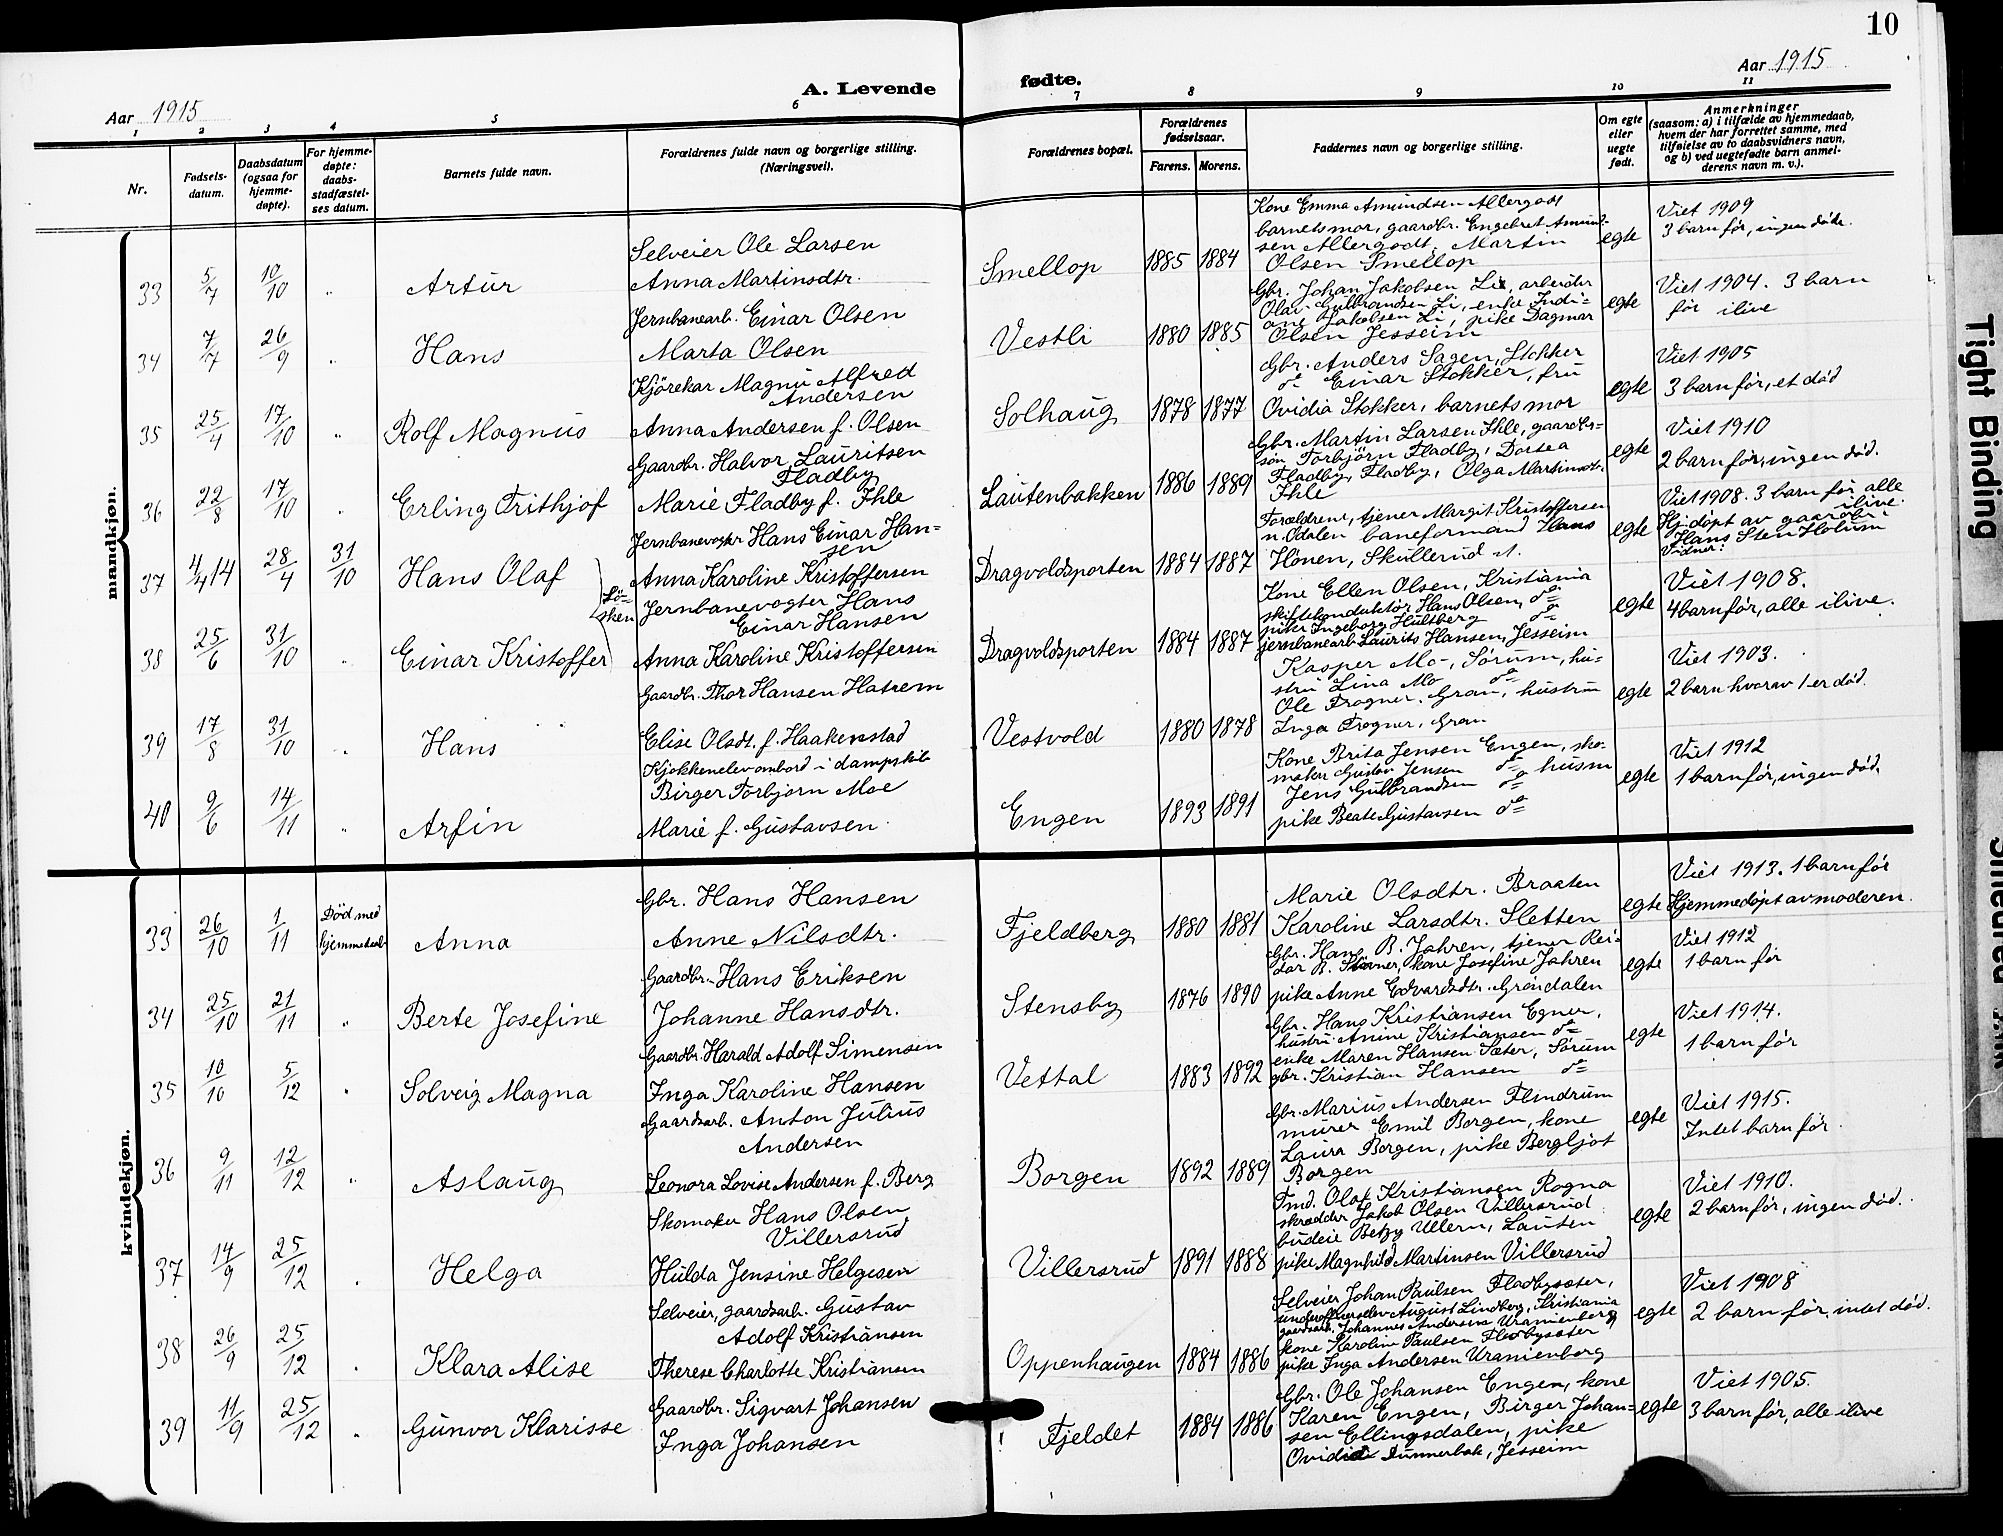 10
Aar 1915
A. Levende fødte.
Aar 1915
1 2 3 4 5 6 7 8 9 10 11
Nr.
Fødsels-datum.
Daabsdatum (ogsaa for hjemme-døpte).
For hjemme-døpte: daabs-stadfæstel-ses datum.
Barnets fulde navn.
Forældrenes fulde navn og borgerlige stilling. (Næringsvei).
Forældrenes bopæl.
Forældrenes fødselsaar.
Farens. Morens.
Faddernes navn og borgerlige stilling.
Om egte eller uegte født.
Anmerkninger
(saasom: a) i tilfælde av hjemmedaab,
hvem der har forrettet samme, med
tilføielse av to daabsvidners navn,
og b) ved uegtefødte barn anmel-
derens navn m. v.).
mandkjøn.
33 5/7 10/10 " Artur
Selveier Ole Larsen
Anna Martinsdtr.
Smellop 1885 1884
Kone Emma Amundsen Allergodt
barnets mor, gaardbr. Engebret Amund-
sen Allergodt. Martin
Olsen Smellop
egte
Viet 1909
3 barn før, ingen døde.
34 7/7 26/9 " Hans
Jernbanearb. Einar Olsen
Marta Olsen
Vestli 1880 1885
Gbr. Johan Jakobsen Li, arbeider
Olav Gulbrandsen Li, enke Indi-
ane Jakobsen Li, pike Dagmar
Olsen Jesseim
egte
Viet 1904. 3 barn
før ilive
35 25/4 17/10 " Rolf Magnus
Kjörekar Magnus Alfred
Andersen
Anna Andersen f. Olsen
Solhaug 1878 1877
Gbr. Anders Sagen, Stokker
do Einar Stokker, fru
Ovidia Stokker, barnets mor
egte
Viet 1905
3 barn før, et død
36 22/8 17/10 " Erling Frithjof
Gaardbr. Halvor Lauritsen
Fladby
Marie Fladby f. Ihle
Lautenbakken 1886 1889
Gbr. Martin Larsen Ihle, gaardbr-
søn Torbjörn Fladby, Dortea
Fladby, Fladby, Olga Martinsdtr.
Ihle
egte
Viet 1910
2 barn før, ingen død.
37 4/4 14 28/4 31/10 Hans Olaf
Sø-
sken
Jernbanevogter Hans Einar Han-
sen
Anna Karoline Kristoffersen
Dragvoldsporten 1884 1887
Forældrene, tjener Margit Kristoffersen
n. Odalen baneformand Hans
Hönen, Skullerud st.
egte
Viet 1908. 3 barn før alle
ilive.
Hj.døpt av gaardbr.
Hans Sten Holum
Vidner:
38 25/6 31/10 " Einar Kristoffer
Jernbanevogter Hans
Einar Hansen
Anna Karoline Kristoffersen
Dragvoldsporten 1884 1887
Kone Ellen Olsen, Kristiania
skiftekonduktör Hans Olsen, do
pike Ingeborg Hultberg do
jernbanearb. Laurits Hansen, Jesseim
egte
Viet 1908.
4 barn før, alle ilive.
39 17/8 31/10 " Hans
Gaardbr. Thor Hansen Hatrem
Elise Olsdt. f. Haakenstad
Vestvold 1880 1878
Kasper Mo, Sørum, hu-
stru Lina Mo do
Ole Trogner. Gran, hustru
Inga Trogner, Gran
egte
Viet 1903.
2 barn hvorav 1 er død.
40 9/6 14/11 " Arfin
Kjøkkenelev ombord i dampskib
Birger Torbjørn Moe
Marie f. Gustavsen
Engen 1893 1891
Kone Brita Jensen Engen, sko-
maker Gustav Jensen do husm
Jens Gulbrandsen do
pike Beate Gustavsen do
egte
Viet 1912
1 barn før, ingen død.
kvindekjøn.
33 26/10 1/11 Død med hjemmedaab Anna
Gbr. Hans Hansen
Anne Nilsdtr.
Fjeldberg 1880 1881
Marie Olsdtr. Braaten
Karoline Larsdtr. Sletten
egte
Viet 1913. 1 barn før
Hjemmedøpt av moderen.
34 25/10 21/11 " Berte Josefine
Gaardbr. Hans Eriksen
Johanne Hansdtr.
Stensby 1876 1890
Gbr. Hans B. Jahren, tjener Rei-
dar B. Störner, kone Josefine Jahren
pike Anne Edvardsdtr. Gröndalen
egte
Viet 1912
1 barn før
35 10/10 5/12 " Solveig Magna
Gaardbr. Harald Adolf Simensen
Inga Karoline Hansen
Vettal 1883 1892
Gbr. Hans Kristiansen Egner,
hustru Anine Kristiansen do
enke Maren Hansen Sæter, Sørum
gbr. Kristian Hansen do
egte
Viet 1914.
1 barn før
36 9/11 12/12 " Aslaug
Gaardsarb. Anton Julius
Andersen
Leonora Lovise Andersen f. Berg
Borgen 1892 1889
Gbr. Marius Andersen Flindrum
murer Emil Borgen, kone
Laura Borgen, pike Bergljot
Borgen
egte
Viet 1915.
Intet barn før.
37 14/9 25/12 " Helga
Skomaker Hans Olsen
Villersrud
Hulda Jensine Helgesen
Villersrud 1891 1888
Fmd. Olaf Kristiansen Rogna
skrædder Jakob Olsen Villersrud
budeie Betzy Ullern, Lauten
pike Magnhild Martinsen Villersrud
egte
Viet 1910.
2 barn før, ingen død.
38 26/9 25/12 " Klara Alise
Selveier, gaardsarb. Gustav
Adolf Kristiansen
Therese Charlotte Kristiansen
Oppenhaugen 1884 1886
Selveier Johan Paulsen Fladbysæter,
underofficerselev August Lindberg, Kristiania
gaardsarb. Johannes Andersen Uranienborg
kone Karoline Paulsen Fladbysæter
pike Inga Andersen Uranienborg
egte
Viet 1908
2 barn før, intet død.
39 11/9 25/12 " Gunvor Klarisse
Gaardbr. Sigvart Johansen
Inga Johansen
Fjeldet 1884 1886
Gbr. Ole Johansen Engen, kone
Karen Engen, Birger Johan-
sen Ellingsdalen, pike
Ovidia Dunnerbak, Jesseim
egte
Viet 1905.
3 barn før, alle ilive
Tight Binding
Smeared Ink